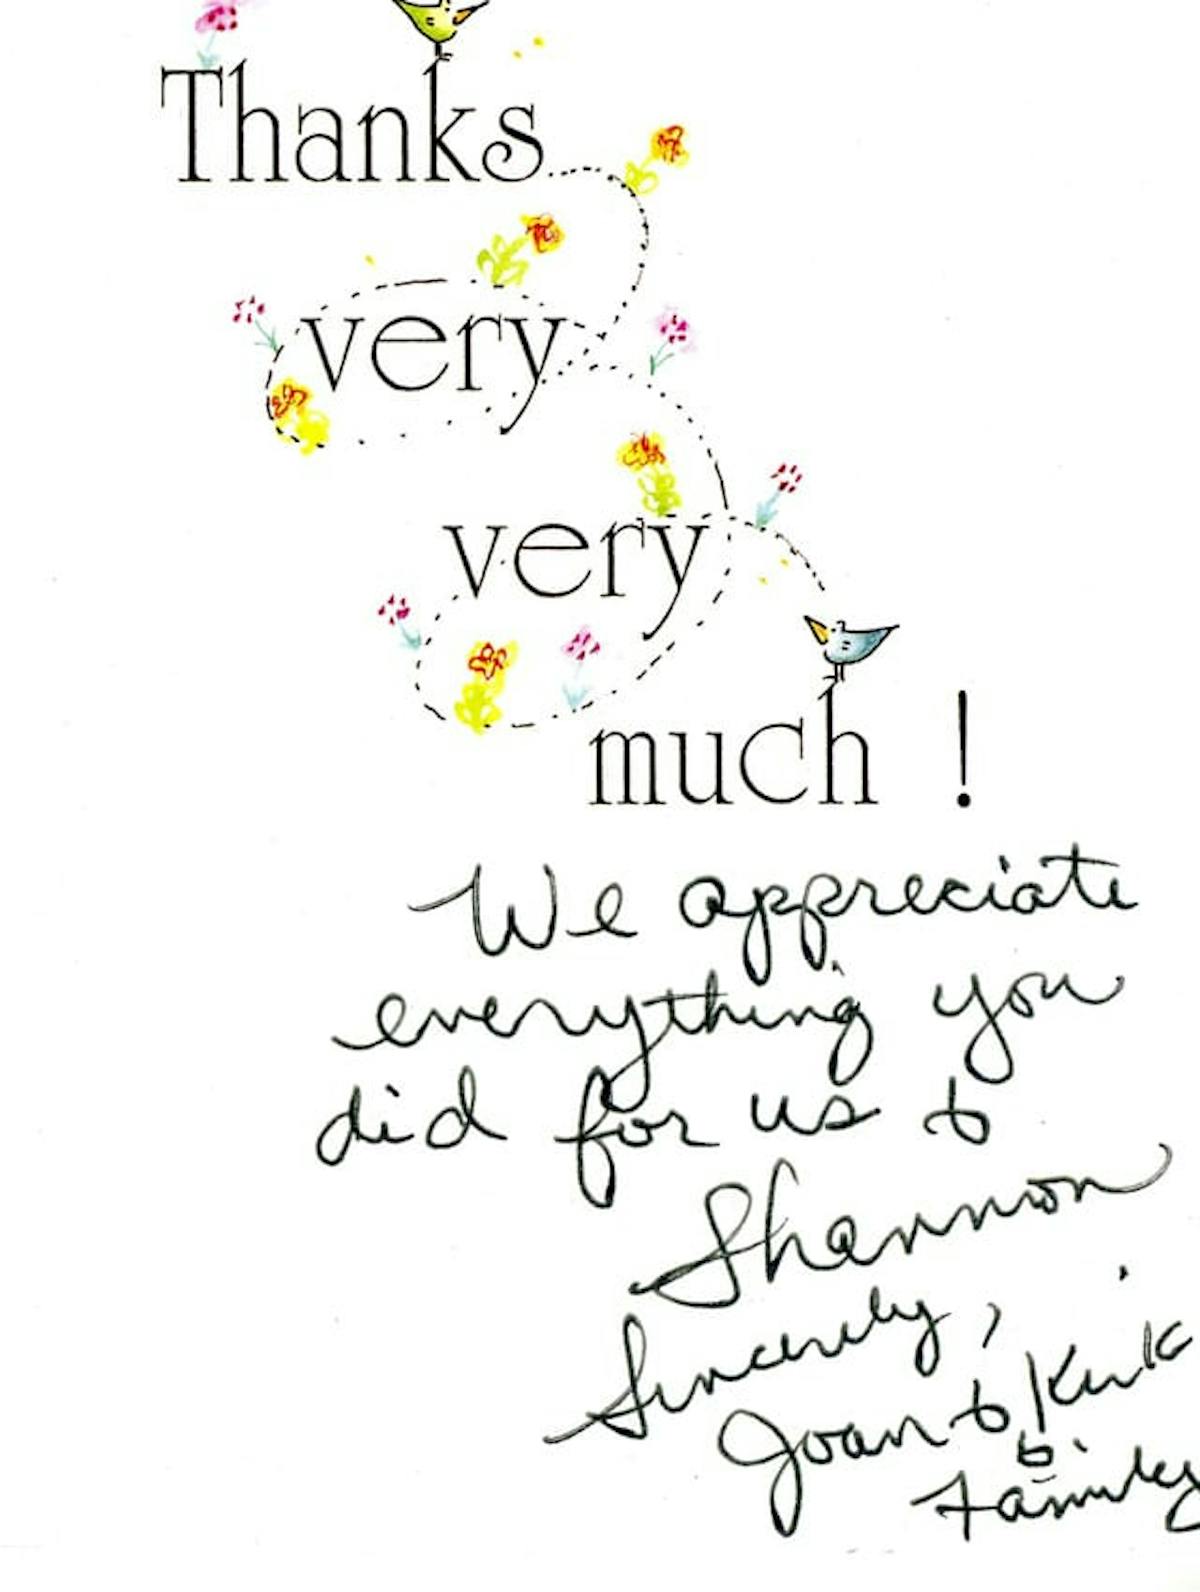 Thanks
very
very
much !
We appreciate
everything you
did for us &
Shannon
Sincerely,
Joan & Kirk
&
family